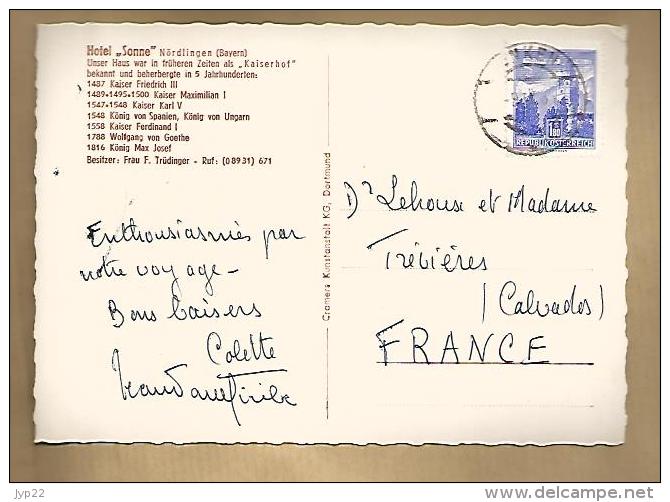 Hotel „Sonne” Nördlingen (Bayern)
Unser Haus war in früheren Zeiten als „Kaiserhof”
bekannt und beherbergte in 5 Jahrhunderten:
1487 Kaiser Friedrich III
1489-1495-1500 Kaiser Maximilian I
1547-1548 Kaiser Karl V
1548 König von Spanien, König von Ungarn
1558 Kaiser Ferdinand I
1788 Wolfgang von Goethe
1816 König Max Josef
Besitzer: Frau F. Trüdinger - Ruf: (08931) 671
Enthousiasmés par
notre voyage -
Bons baisers
Colette
Cramers Kunstanstalt KG, Dortmund
1.80
REPUBLIK ÖSTERREICH
Dr Lehoux et Madame
Trévières
(Calvados)
FRANCE
jyp22
delcampe.net